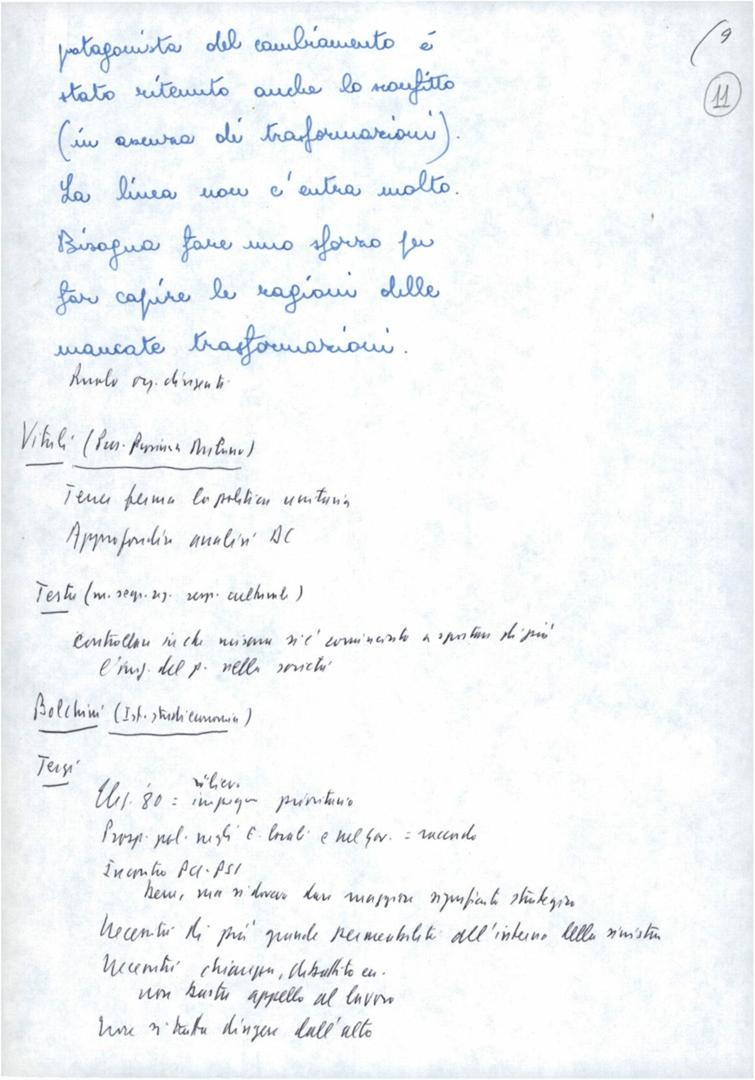 9
11
protagonista del cambiamento é
stato ritenuto anche lo sconfitto
(in assenza di trasformazioni).
La linea non c'entra molto.
Bisogna fare uno sforzo per
far capire le ragioni delle
mancate trasformazioni.
Ruolo org. dirigenti
Vitali (Milano)
Tener ferma la politica unitaria
Approfondire analisi DC
Testa (m. segr. reg. resp. culturale)
Controllare in che misura si é cominciato a spostare di più
l'imp. del p. nella società
Bolchini (Ist. studi economia)
Terzi
rilievo
Elez. '80 = impegno prioritario
Prosp. pol. negli E. locali e nel gov. = raccordo
Incontro PCI-PSI
bene, ma si doveva dare maggiore significato strategico
Necessità di più grande permeabilità all'interno della sinistra
Necessità chiarezza, dibattito
non basta appello al lavoro
non si tratta dirigere dall'alto